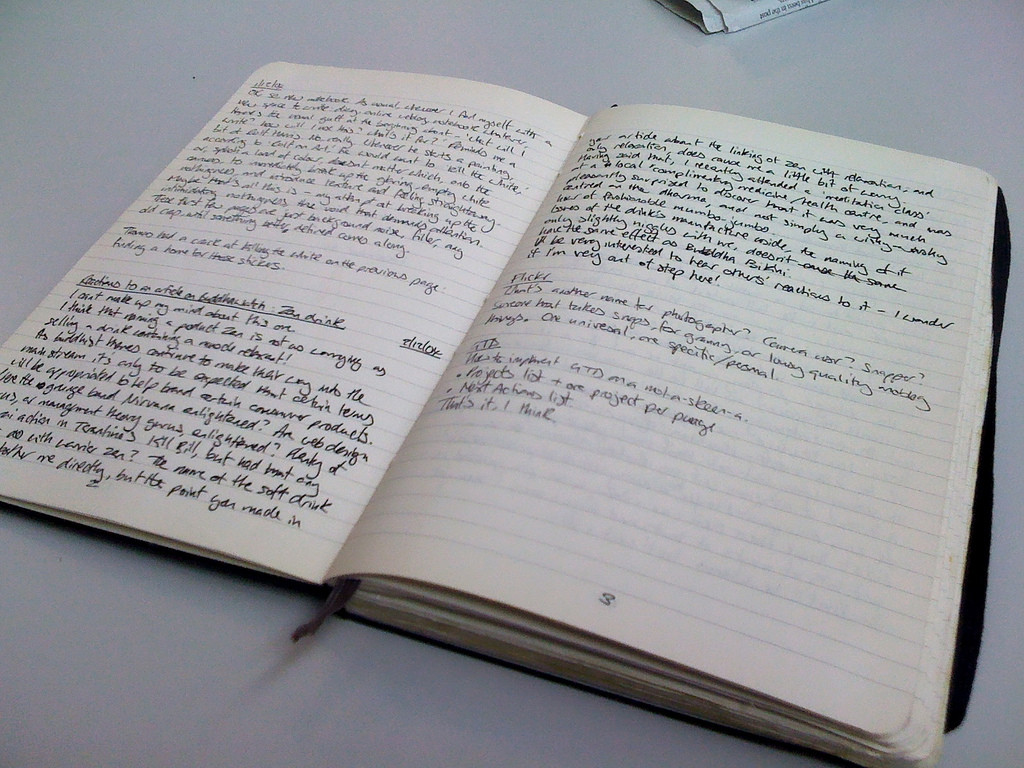 OK so new notebook. As usual whenever I find myself with a
new space to write diary, online weblog, notebook whatever,
there's the usual guff at the beginning about - 'what will I
write? how will I use this? what's it for?' Reminds me a
bit of Rolf Harris. So really whenever he starts a painting,
according to 'Rolf on Art' he would want to 'kill the white'
or, splash a load of colour, doesn't matter which, onto the
canvas to mostly break up the glaring, empty white
nothingness, and introduce texture and feeling straightaway.
Maybe that's all this is - my attempt at breaking up the
glaring nothingness, the void that demands attention.
Take that then
old crap, until something better defined comes along.
Tommo had a crack at killing the white on the previous page.
finding a home for those stickers.
Reactions to an article on Buddhawatch: Zen drink
2/12/04
I can't make up my mind about this one.
I think that naming a product Zen is not as worrying as
selling a drink containing a noodle retreat!
As buddhist themes continue to make their way into the
mainstream it's only to be expected that certain terms
will be appropriated to help brand certain consumer products.
Were the grunge band Nirvana enlightened? Are web design
or management theory gurus enlightened? Plenty of
action in Tarantino's Kill Bill, but had that any
do with warrior zen? The name of the soft drink
bother me directly, but the point you made in
2
your article about the linking of zen with relaxation, and
only relaxation, does cause me a little bit of worry.
Having said that, I recently attended a 'meditation class'
in a local complimentary medicine/health centre - and was
pleasantly surprised to discover that it was very much
centred on the dharma, and not simply a wishy-washy
load of fashionable mumbo-jumbo.
Some of the drink's manufacture aside, the naming of it
only slightly niggles with me, doesn't once the same
have the same effect as Buddha Bikini.
I'd be very interested to hear others' reactions to it - I wonder
if I'm very out of step here!
Flickr
That's another name for photographer? Camera user? Snapper?
Someone that takes snaps, for a granny, or lowy quality analog
things. One universal, one specific/personal.
GTD
How to implement GTD on a mole-skeen-a.
• Projects list + one project per page
• Next Actions list
That's it, I think.
3